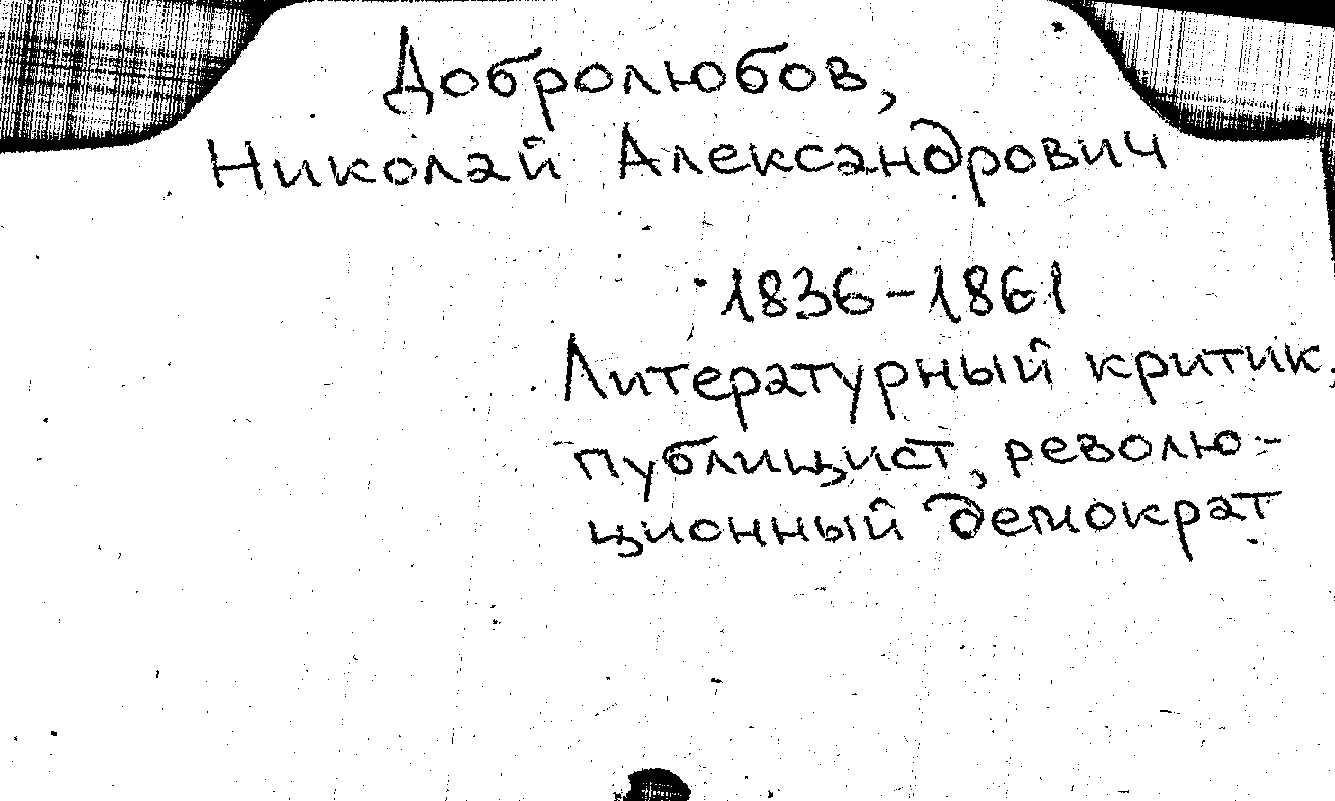 Добролюбов,
Николай Александрович
1836-1861
Литературный критик,
публицист, револю-
ционный демократ